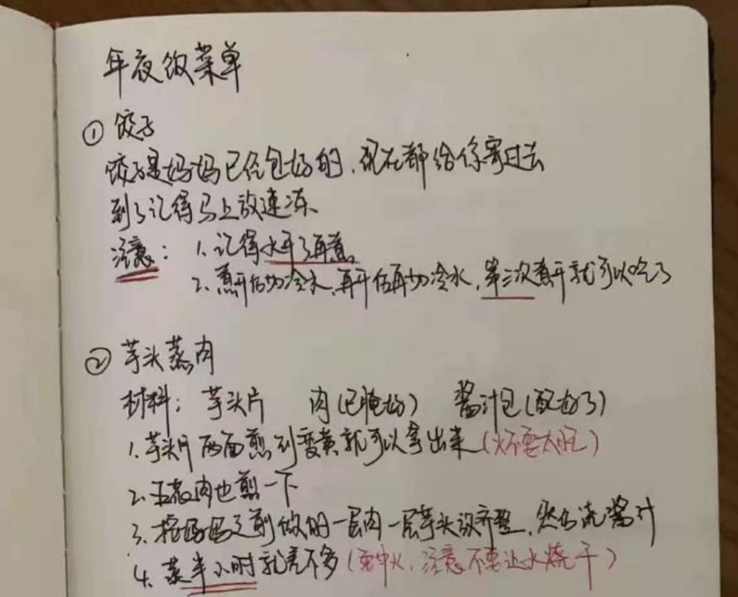 年夜饭菜单
① 饺子
饺子是妈妈已经包好的，现在都给你寄过去
到了记得马上放速冻、
注意：1.记得水开了再煮。
2.煮开后加冷水，再开后再加冷水，第三次煮开就可以吃了
② 芋头蒸肉
材料：芋头片 肉（已腌好） 酱汁包（配好了）
1.芋头片两面煎到变黄就可以拿出来（火不要太旺）
2.五花肉也煎一下
3.按妈妈之前做的一层肉一层芋头放齐整，然后浇酱汁
4.蒸半小时就差不多（要中火，注意不要让水烧干）